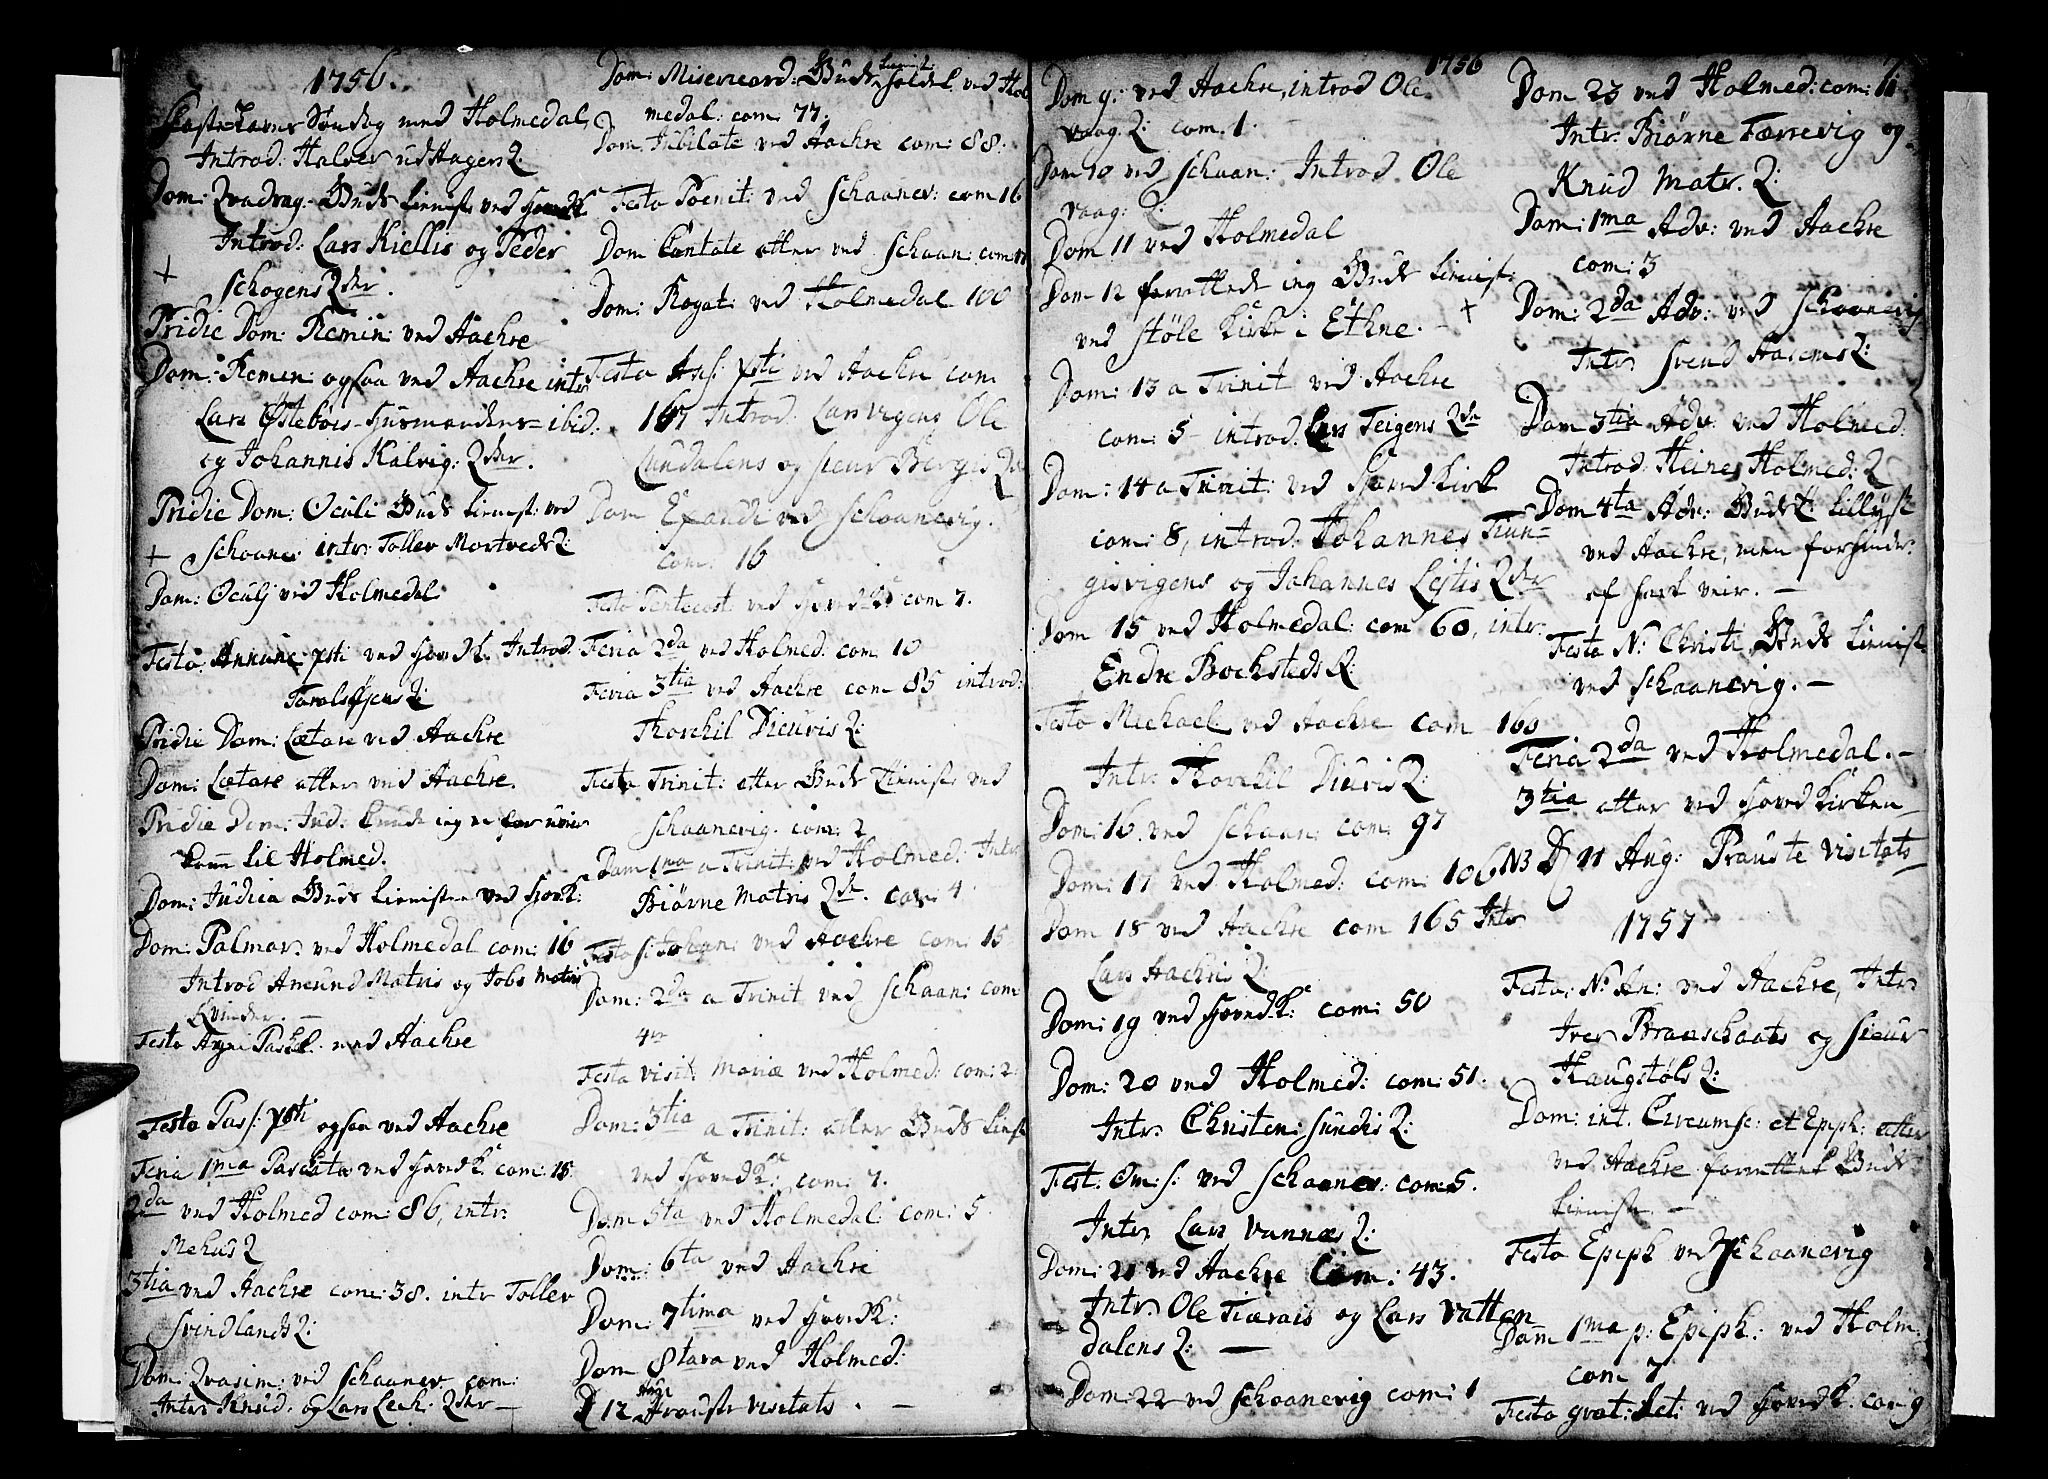 1756.
Fastelavns Søndag ved Holmedal,
Introd: Halver udHagens Q:
Dom: Qvadrag. Guds tienist: ved Hovedk:
Introd: Lars Kiellis og Peder
+ Schogens Qdr.
Pridie Dom: Remin: ved Aachre
Dom: Remin: ogsaa ved Aachre intr:
Lars Østebøis Huusmandens ibid:
og Johannis Kalvig: Qdr.
Pridie Dom: Oculi Guds tienist: ved
+ Schaane: intr: Tollev Mortveds Q:
Dom: Oculj ved Holmedal
Festo Annunc: Xsti ved Hovedk. Introd.
Q:
Pridie Dom: Lætare ved Aachre
Dom: Lætare atter ved Aachre.
Pridie Dom: Jud: kunde ieg for uveir
kom til Holmed.
Dom: Judica Guds tienisten ved Hovk:
Dom: Palmar: ved Holmedal com: 16
Introd Amund Matris og Jobs Matris
Qvinder. —
Festo Agni Paschal. ved Aachre
Festo Pass: Xsti ogsaa ved Aachre
Feria 1ma Paschatos ved Hovedk: com: 18
2da ved Holmed com: 86, intr:
Mehus Q
3tia ved Aachre com: 38. intr Tollev
Svindlands Q:
Dom: Qvasim: ved Schaanev com:
Intr: Knud. og Lars Lech: Qdr —
Dom: Misericord: Guds tienist: holdet ved Hol
medal: com: 77.
Dom. Jubilate ved Aachre com: 88.
Festo Poenit: ved Schaanev: com 16
Dom Cantate atter ved Schaan: com
Dom: Rogat: ved Holmedal 100
Festo Asc: Xsti ved Aachre com
167 Introd: Lars Vigens Ole
Lundalens og Siur Bergis Qdr
Dom Exaudi ved Schoanevig.
com: 16
Festo Pentecost: ved Hovedk: com 7.
Feria 2da ved Holmed: com 10
Feria 3tia ved Aachre com 85 introd:
Thorchil Dieuvis Q:
Festo Trinit: atter Guds tienist: ved
Schaanevig. com: 2
Dom 1ma a Trinit: ved Holmed: Intr
Biørne Matris Qde. com: 4
Festo S: Johan: ved Aachre com: 15
Dom: 2da a Trinit ved Schaan: com
4r
Festo Visit: Mariæ ved Holmed: com: 2
Dom: 3tia a Trinit: atter Guds tienist
ved Hovedk: com: 7.
Dom 5ta ved Holmedal: com: 5.
Dom: 6ta ved Aachre
Dom: 7tima ved Hovedk:
Dom 8tava ved Holmed:
D 12 Aug: Prouste visitats. —
1756
Dom 9: ved Aachre, introd Ole
vaag Q: com. 1.
Dom 10 ved Schaan: Introd. Ole
vaag: Q:
Dom 11 ved Holmedal
Dom 12 forrettede ieg Guds tienist:
ved Støle Kirke i Ethne. — +
Dom: 13 a Trinit ved Aachre
com: 5 introd: Lars Teigens Qda
Dom: 14 a Trinit: ved Hoved Kirk
com: 8, introd. Johannes Tun=
gisvigens og Johannes Lejtis Qdr
Dom 15 ved Holmedal: com 60, intr:
Endre Bochsteds Q:
Festo Michael: ved Aachre com 160
Intr: Thorchil Diuvis Q:
Dom: 16 ved Schaan: com: 97
Dom: 17 ved Holmed: com: 106
Dom 18 ved Aachre com 165 Intr
Lars Aachris Q:
Dom: 19 ved Hovedk: com: 50
Dom: 20 ved Holmed: com: 51.
Intr: Christen: Sundis Q:
Fest: Om: S: ved Schaanev: com: 5.
Intr Lars Vannes Q:
Dom: 21 ved Aachre Com: 43.
Intr: Ole Tiærais og Lars Vatten
dalens Q: —
Dom: 22 ved Schoanevig com: 1
7.
Dom 23 ved Holmed: com: 11
Intr: Biørne Tærrevig og
Knud Matr. Q:
Dom: 1ma Adv: ved Aachre
com: 3
Dom: 2da Adv: ved Schoanevig
Intr Svend Q:
Dom 3tia Adv: ved Holmed:
Introd: Heines Holmed: Q
Dom 4ta Adv: Guds t: tillyst
ved Aachre, men forhindr:
af hart veir. —
Festo N: Christi Guds tienist
ved Schaanevig. —
Feria 2da ved Holmedal. —
3tia atter ved Hoved Kirken —
NB D 11 Aug: Prouste visitats —
1757
Festo: N: An: ved Aachre, Intr
Iver Branschaats og Sieur
Haugstøls Q:
Dom: int. Circumsc: et Epiph: atter
ved Aachre forrettet Guds
tieniste. —
Festo Epiph ved Schoanevig
Dom 1ma p: Epiph: ved Holm.
com 7
Festo grat: Act: ved Hovedk: com 9